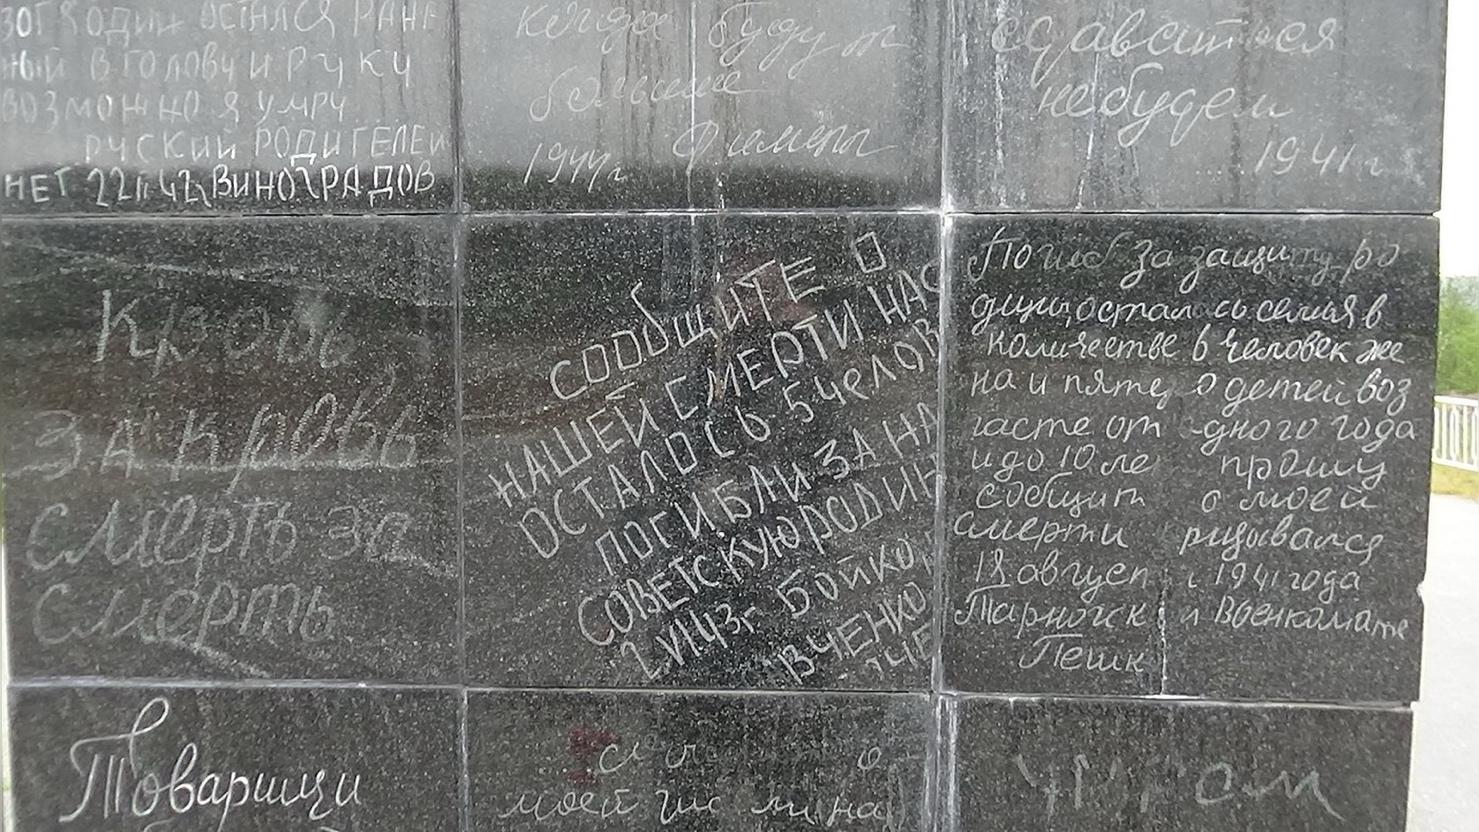 ЗОГ Я ОДИН ОСТАЛСЯ РАНЕ
НЫЙ В ГОЛОВУ И РУКУ
ВОЗМОЖНО Я УМРУ
РУСКИЙ РОДИТЕЛЕЙ
НЕТ 22 II 42 ВИНОГРАДОВ
когда будут
больше
1944г
сдаваться
не будем
1941г
Кровь
за кровь
смерть за
смерть
СООБЩИТЕ О
НАШЕЙ СМЕРТИ НАС
ОСТАЛОСЬ 5 ЧЕЛОВ
ПОГИБЛИ ЗА НА
СОВЕТСКУЮ РОДИН
2 VII 43г. БОЙКО,
ВЧЕНКО
Погиб за защиту ро
дины осталась семия в
количестве 6 человек же
на и пятеро детей воз
расте от одного года
и до 10 ле прошу
сообщит о моей
смерти ризывался
18 август 1941 года
Тарногск и Военкомате
Пешк
Товарищи
моей